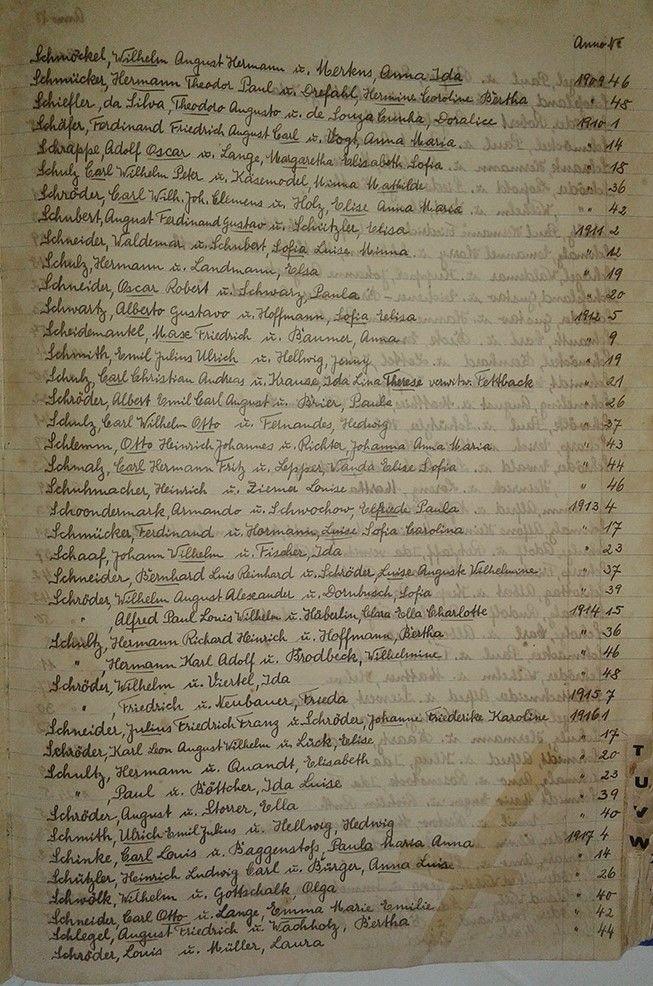 Anno №
Schmöckel, Wilhelm August Hermann u. Mertens, Anna Ida 1909 46
Schmücker, Hermann Theodor Paul u. Drefahl, Hermine Caroline Bertha " 48
Schiefler, da Silva Theodoro Augusto u. de Souza Cunha, Doralice 1910 1
Schäfer, Ferdinand Friedrich August Carl u. Vogt, Anna Maria " 14
Schrappe Adolf Oscar u. Lange, Margaretha Elisabeth Sofia " 18
Schulz Carl Wilhelm Peter u. Käsemodel, Minna Mathilde " 36
Schröder, Carl Wilh. Joh. Clemens u. Holz, Elise Anna Maria " 42
Schubert, August Ferdinand Gustav u. Schützler, Elisa 1911 2
Schneider, Waldemar u. Schubert, Sofia Luise Minna " 12
Schulz, Hermann u. Landmann, Elsa " 19
Schneider, Oscar Robert u. Schwarz, Paula " 20
Schwartz, Alberto Gustavo u. Hoffmann, Sofia Elisa 1912 5
Scheidemantel, Max Friedrich u. Baumer, Anna " 9
Schmith, Emil Julius Ulrich u. Hellwig, Jenny " 19
Schulz, Carl Christian Andreas u. Krause, Ida Lina Therese verwitw. Fettback " 21
Schröder, Albert Emil Carl August u. Brier, Paula " 26
Schulz, Carl Wilhelm Otto u. Fernandes, Hedwig " 37
Schlemm, Otto Heinrich Johannes u. Richter, Johanna Anna Maria " 43
Schmalz, Carl Hermann Fritz u. Lepper, Wanda Elise Sofia " 44
Schuhmacher, Heinrich u. Ziemer Louise " 46
Schoondermark Armando u. Schwochow, Elfriede Paula 1913 4
Schmücker, Ferdinand u. Hormann, Luise Sofia Carolina " 17
Schaaf, Johann Wilhelm u. Fischer, Ida " 23
Schneider, Bernhard Luis Reinhard u. Schröder, Luise August Wilhelmine " 37
Schröder, Wilhelm August Alexander u. Dornbusch, Sofia " 39
" , Alfred Paul Louis Wilhelm u. Häberlin, Clara Ella Charlotte 1914 15
Schultz, Hermann Richard Heinrich u. Hoffmann, Bertha " 36
" , Hermann Karl Adolf u. Brodbeck, Wilhelmine " 46
Schröder, Wilhelm u. Viertel, Ida " 48
" , Friedrich u. Neubauer, Frieda 1915 7
Schneider, Julius Friedrich Franz u. Schröder, Johanne Friederike Karoline 1916 1
Schröder, Karl Leon August Wilhelm u. Lück, Elise " 17
Schultz, Hermann u. Quandt, Elisabeth " 20
" , Paul u. Böttcher, Ida Luise " 23
Schröder, August u. Storrer, Ella " 39
Schmith, Ulrich Emil Julius u. Hellwig, Hedwig " 40
Schinke, Carl Louis u. Baggenstoß, Paula Maria Anna 1917 4
Schützler, Heinrich Ludwig Carl u. Bürger, Anna Luise " 14
Schwölk, Wilhelm u. Gottschalk, Olga " 26
Schneider Carl Otto u. Lange, Emma Marie Emilie " 40
Schlegel, August Friedrich u. Wachholz, Bertha " 42
Schröder, Louis u. Müller, Laura " 44
T
U
V
W